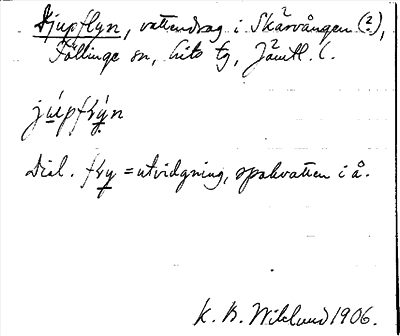 Djupflyn, vattendrag i Skärvången (2),
Föllinge sn, Lits tg, Jämtl. l.
júpflýn
Dial. fly = utvidgning, spakvatten i å.
K. B. Wiklund 1906.